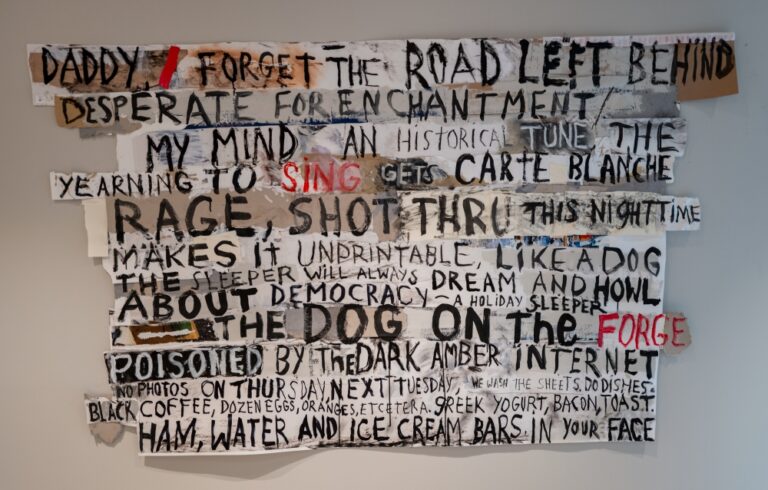 DADDY, I FORGET THE ROAD LEFT BEHIND
DESPERATE FOR ENCHANTMENT/
MY MIND AN HISTORICAL TUNE, THE
YEARNING TO SING GETS CARTE BLANCHE
RAGE, SHOT THRU THIS NIGHTTIME
MAKES IT UNPRINTABLE, LIKE A DOG
THE SLEEPER WILL ALWAYS DREAM AND HOWL
ABOUT DEMOCRACY – A HOLIDAY SLEEPER
THE DOG ON THE FORGE
POISONED BY THE DARK AMBER INTERNET
NO PHOTOS ON THURSDAY, NEXT TUESDAY, WE WASH THE SHEETS. DO DISHES.
BLACK COFFEE, DOZEN EGGS, ORANGES, ETCETERA. GREEK YOGURT, BACON, TOAST.
HAM, WATER AND ICE CREAM BARS IN YOUR FACE